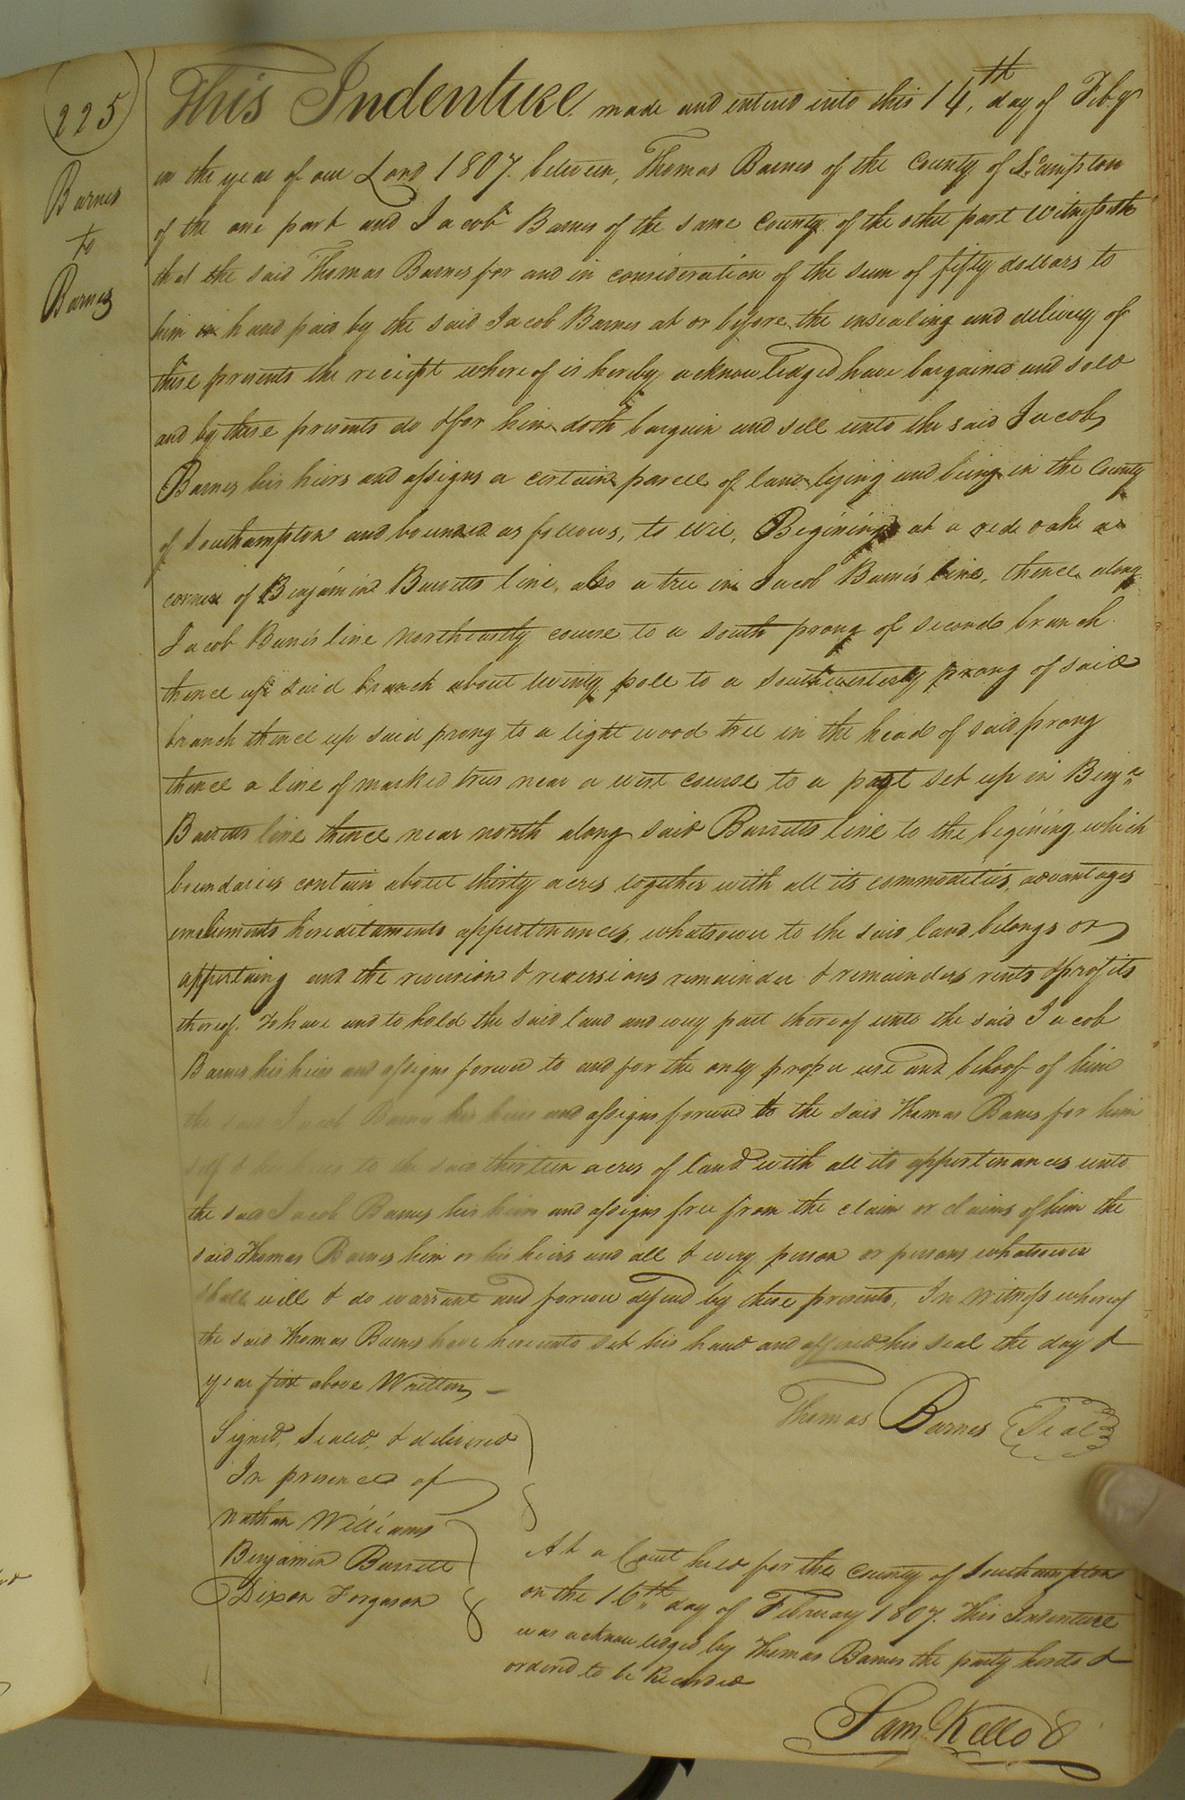 225
Barnes
to
Barnes
This Indenture made and entend into this 14th day of Feb.y
in the year of our Lord 1807. between, Thomas Barnes of the County of S.hampton
of the one part and Jacob Barnes of the same County of the other part Witnesseth
that the said Thomas Barnes for and in consideration of the sum of fifty dollars to
him in hand paid by the said Jacob Barnes at or before the insealing and delivery of
these presents the receipt whereof is hereby acknowledged have bargained and sold
and by these presents do & for him doth bargain and sell unto the said Jacob
Barnes his heirs and assigns a certain parcel of land lying and being in the County
of Southampton and bounded as follows, to wit, Begining at a red oake a
corner of Benjamine Barretts line, also a tree in Jacob Barnes line, thence along
Jacob Barnes line northeastly course to a south prong of second branch
thence up said branch about twenty pole to a southwesterly prong of said
branch thence up said prong to a light wood tree in the head of said prong
thence a line of marked trees near a west course to a post set up in Benja
Barretts line thence near north along said Barretts line to the begining which
boundaries contain about thirty acres together with all its commodities, advantages
emoluments hereditaments appertinances, whatsoever to the said land belongs or
appertaing and the reversion & reversions remainder & remainders rents & profits
thereof. To have and to hold the said land and every part thereof unto the said Jacob
Barnes his heirs and assigns forever to and for the only proper use and behoof of him
the said Jacob Barnes his heirs and assigns forever the said Thomas Barnes for him
self & his heirs to the said thirteen acres of land with all its appertinances unto
the said Jacob Barnes his heirs and assigns free from the claim or claims of him the
said Thomas Barnes him or his heirs and all & every person or persons whatsoever
shall will & do warrant and forever defend by these presents, In Witness whereof
the said Thomas Barnes have hereunto set his hand and affixed his seal the day &
year first above Written
Thomas Barnes Seal
Signed, Sealed, & delivered
In presence of
Nathan Williams
Benjamin Barrett
Dixon Forgason
At a Court held for the County of Southampton
on the 16th day of February 1807. This Indenture
was acknowledged by Thomas Barnes the party hereto &
ordered to be Recorded
Sam Kello